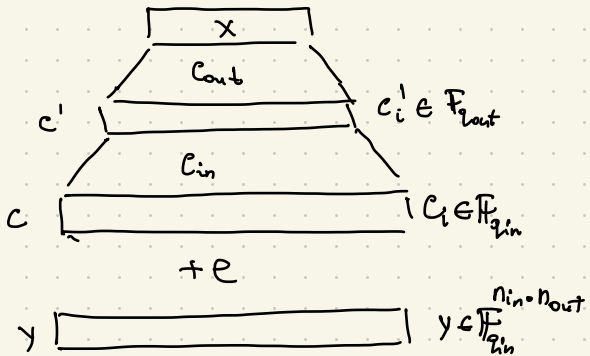 x
Cout
c' c'i ∈ Fqout
Cin
C Ci ∈ Fqin
+e
y y ∈ Fqin^nin·nout